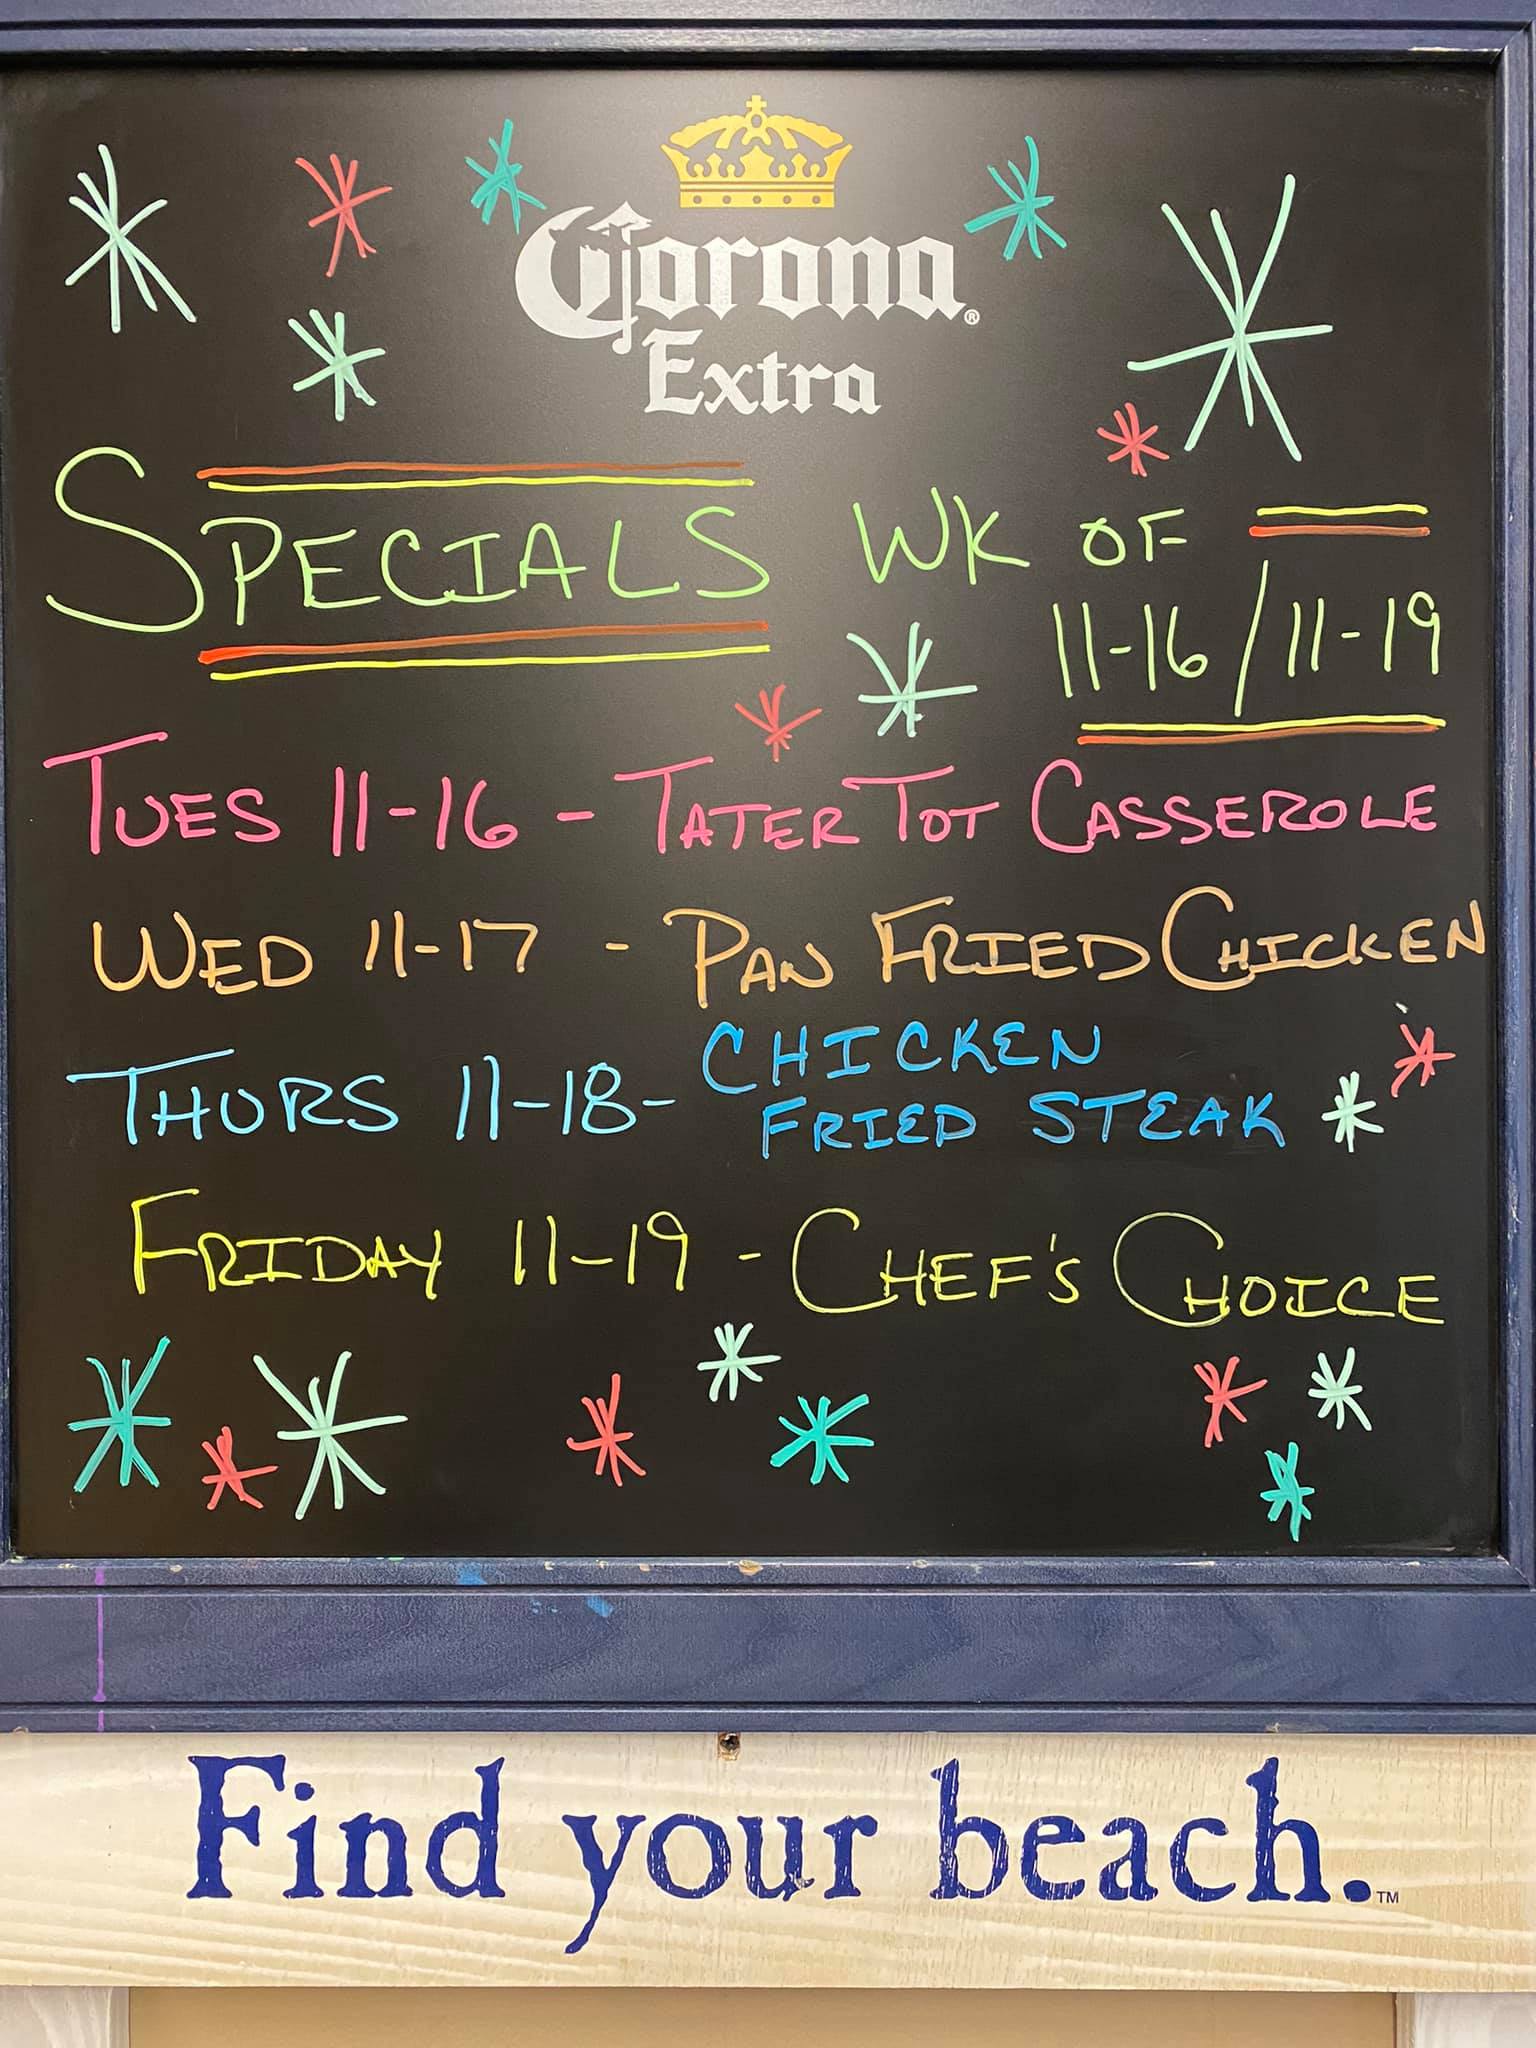 Corona®
Extra
SPECIALS WK OF
11-16/11-19
TUES 11-16 - TATER TOT CASSEROLE
WED 11-17 - PAN FRIED CHICKEN
THURS 11-18- CHICKEN
FRIED STEAK
FRIDAY 11-19 - CHEF'S CHOICE
Find your beach.™